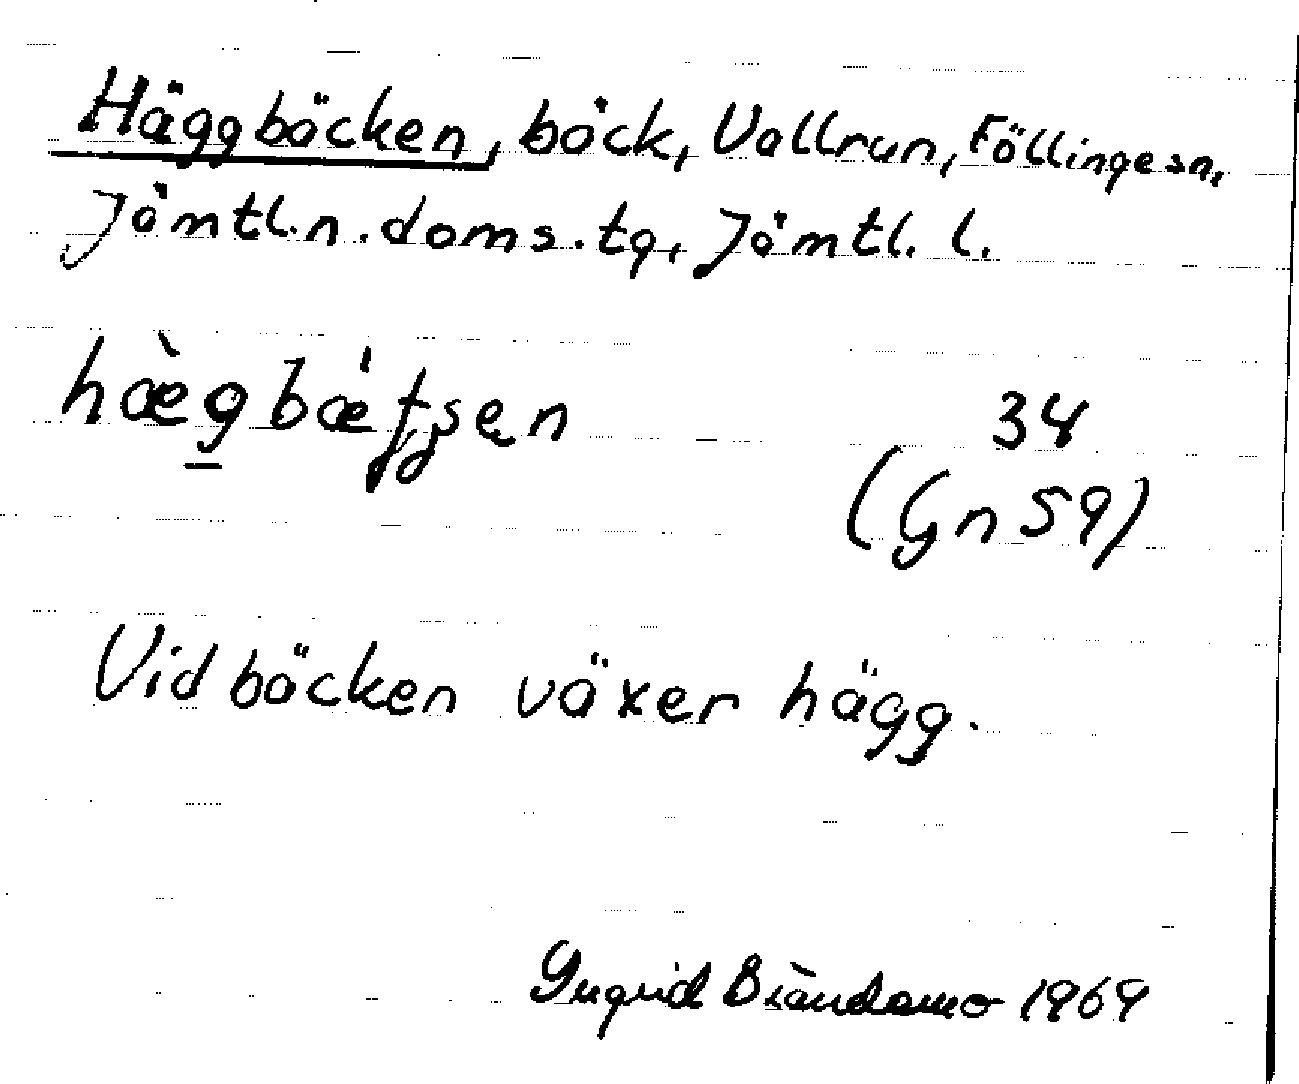 Häggbäcken, bäck, Vallrun, Föllinge sn,
Jämtl.n.doms.tg, Jämtl. l.
34
(Gn 59)
Vid bäcken växer hägg.
Ingrid 1969